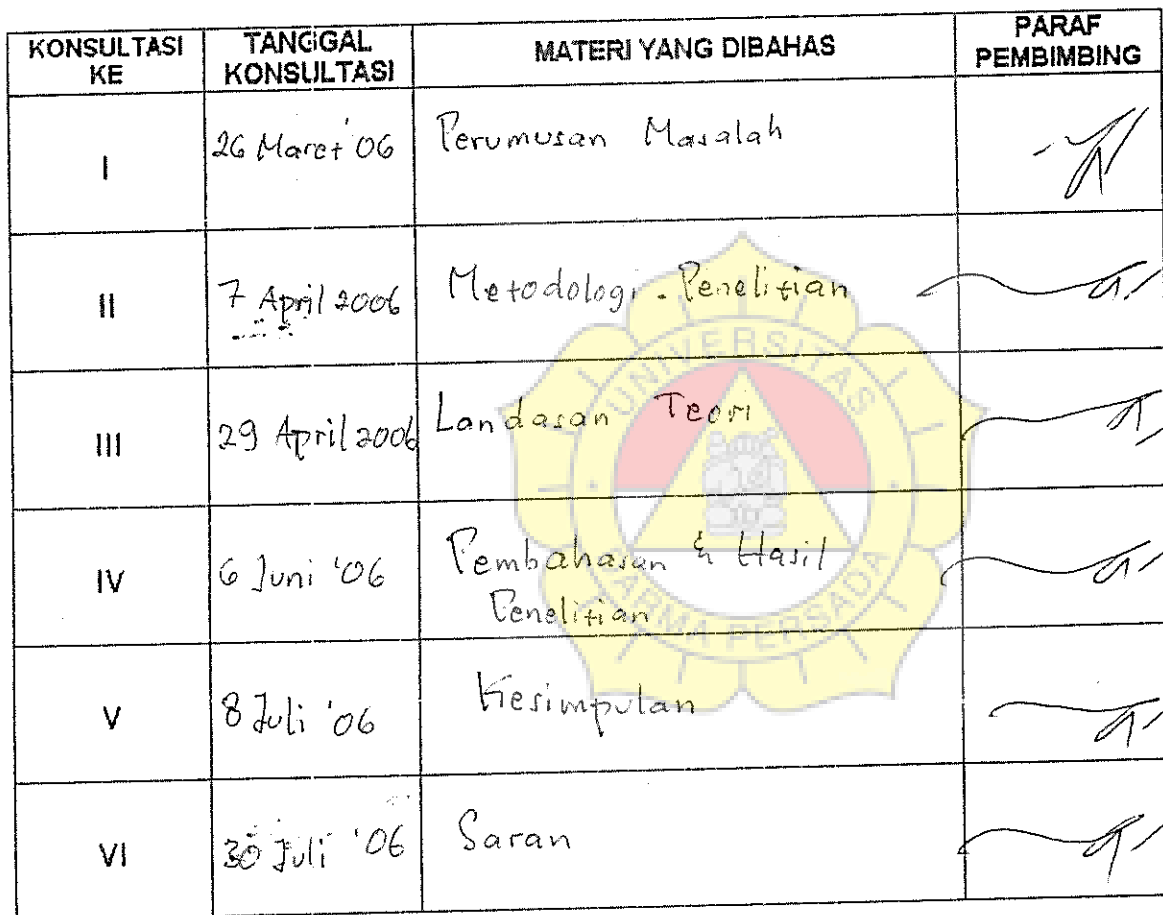 KONSULTASI KE TANGGAL KONSULTASI MATERI YANG DIBAHAS PARAF PEMBIMBING
I 26 Maret '06 Perumusan Masalah
II 7 April 2006 Metodologi Penelitian
III 29 April 2006 Landasan Teori
IV 6 Juni '06 Pembahasan & Hasil
Penelitian
V 8 Juli '06 Kesimpulan
VI 30 Juli '06 Saran
UNIVERSITAS
DARMA PERSADA